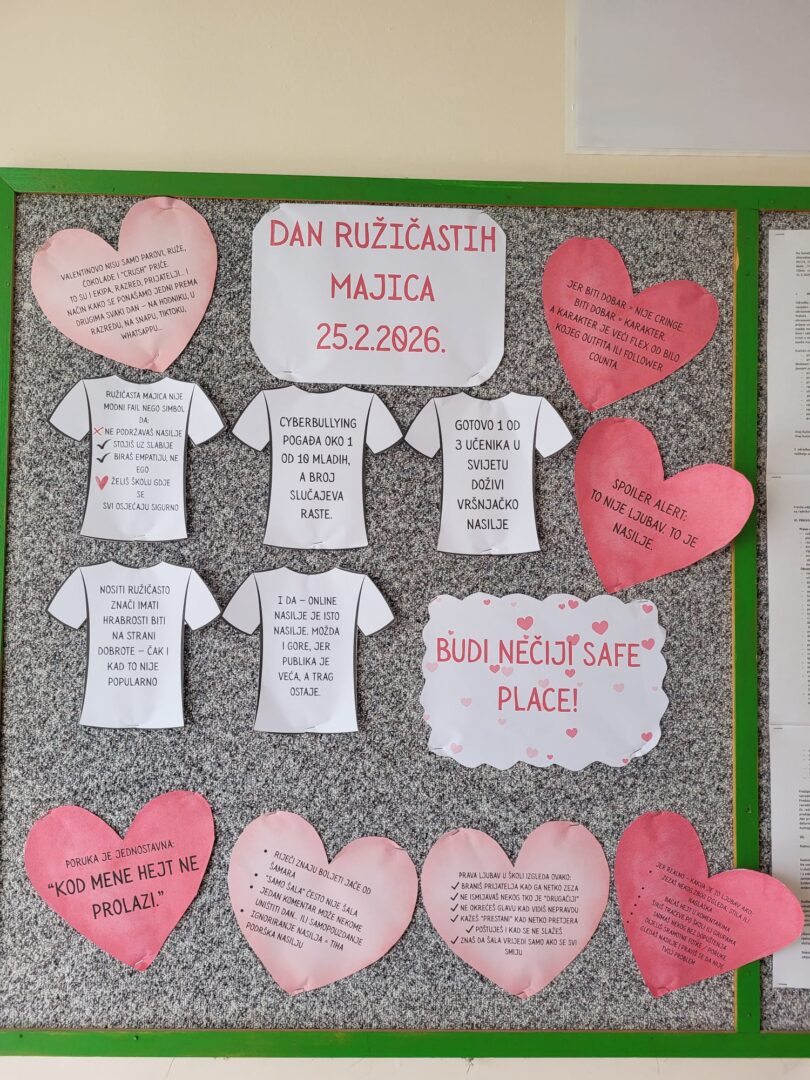 VALENTINOVO NISU SAMO PAROVI, RUŽE,
ČOKOLADE I "CRUSH" PRIČE.
TO SU I EKIPA, RAZRED, PRIJATELJI... I
NAČIN KAKO SE PONAŠAMO JEDNI PREMA
DRUGIMA SVAKI DAN – NA HODNIKU, U
RAZREDU, NA SNAPU, TIKTOKU,
WHATSAPPU...
DAN RUŽIČASTIH
MAJICA
25.2.2026.
JER BITI DOBAR ≠ NIJE CRINGE.
BITI DOBAR = KARAKTER.
A KARAKTER JE VEĆI FLEX OD BILO
KOJEG OUTFITA ILI FOLLOWER
COUNTA.
RUŽIČASTA MAJICA NIJE
MODNI FAIL NEGO SIMBOL
DA:
❌ NE PODRŽAVAŠ NASILJE
✔ STOJIŠ UZ SLABIJE
✔ BIRAŠ EMPATIJU, NE
EGO
❤ ŽELIŠ ŠKOLU GDJE
SE
SVI OSJEĆAJU SIGURNO
CYBERBULLYING
POGAĐA OKO 1
OD 10 MLADIH,
A BROJ
SLUČAJEVA
RASTE.
GOTOVO 1 OD
3 UČENIKA U
SVIJETU
DOŽIVI
VRŠNJAČKO
NASILJE
SPOILER ALERT:
TO NIJE LJUBAV. TO JE
NASILJE.
NOSITI RUŽIČASTO
ZNAČI IMATI
HRABROSTI BITI
NA STRANI
DOBROTE – ČAK I
KAD TO NIJE
POPULARNO
I DA – ONLINE
NASILJE JE ISTO
NASILJE. MOŽDA
I GORE, JER
PUBLIKA JE
VEĆA, A TRAG
OSTAJE.
BUDI NEČIJI SAFE
PLACE!
PORUKA JE JEDNOSTAVNA:
"KOD MENE HEJT NE
PROLAZI."
• RIJEČI ZNAJU BOLJETI JAČE OD
ŠAMARA
• "SAMO ŠALA" ČESTO NIJE ŠALA
• JEDAN KOMENTAR MOŽE NEKOME
UNIŠTITI DAN... ILI SAMOPOUZDANJE
• IGNORIRANJE NASILJA = TIHA
PODRŠKA NASILJU
PRAVA LJUBAV U ŠKOLI IZGLEDA OVAKO:
✔ BRANIŠ PRIJATELJA KAD GA NETKO ZEZA
✔ NE ISMIJAVAŠ NEKOG TKO JE "DRUGAČIJI"
✔ NE OKREĆEŠ GLAVU KAD VIDIŠ NEPRAVDU
✔ KAŽEŠ "PRESTANI" KAD NETKO PRETJERA
✔ POŠTUJEŠ I KAD SE NE SLAŽEŠ
✔ ZNAŠ DA ŠALA VRIJEDI SAMO AKO SE SVI
SMIJU
JER REALNO – KAKVA JE TO LJUBAV AKO:
• ZEZAŠ NEKOG ZBOG IZGLEDA, STILA ILI
NAGLASKA
• BACAŠ HEJT U KOMENTARIMA
• ŠIRIŠ TRAČEVE PO ŠKOLI ILI GRUPAMA
• SNIMAŠ NEKOG BEZ DOPUŠTENJA
• DIJELIŠ SRAMOTNE FOTKE / PORUKE
• GLEDAŠ NASILJE I PRAVIŠ SE DA NIJE
TVOJ PROBLEM